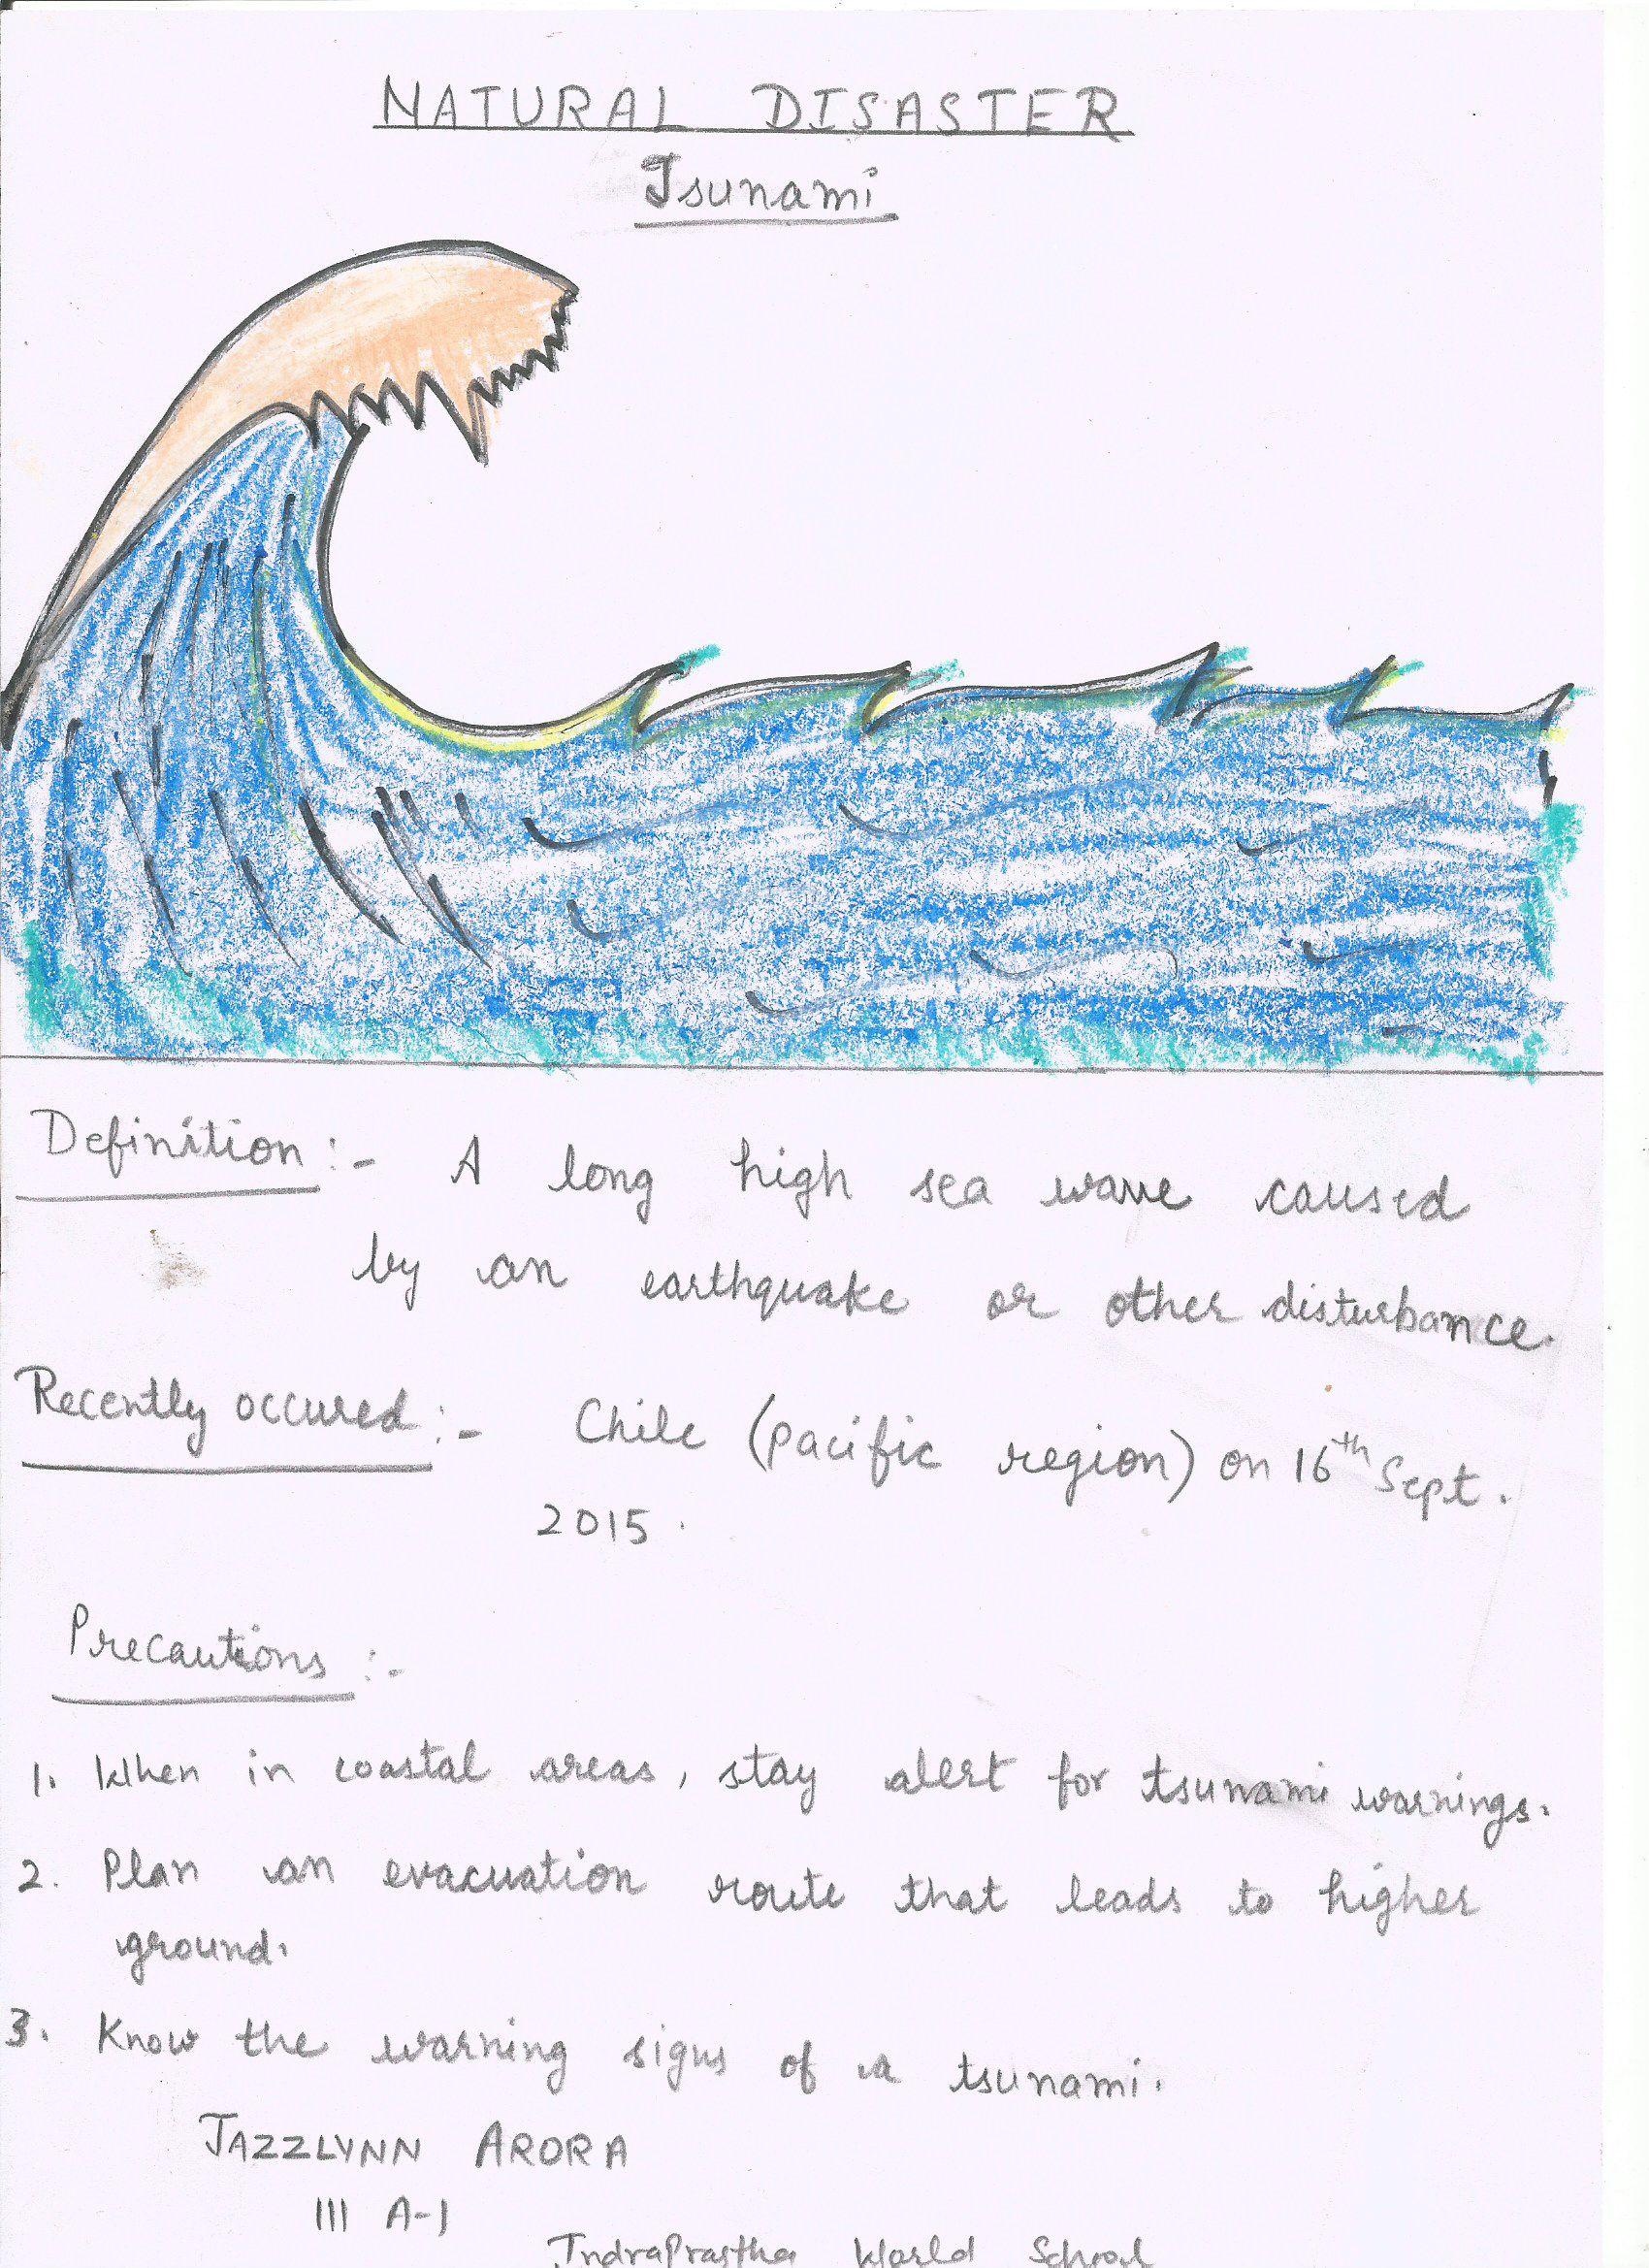 NATURAL DISASTER
Tsunami
Definition :- A long high sea wave caused
by an earthquake or other disturbance.
Recently occured :- Chile (pacific region) on 16th Sept.
2015.
Precautions :-
1. When in coastal areas, stay alert for tsunami warnings.
2. Plan an evacuation route that leads to higher
ground.
3. Know the warning signs of a tsunami.
JAZZLYNN ARORA
III A-1
IndraPrastha World School